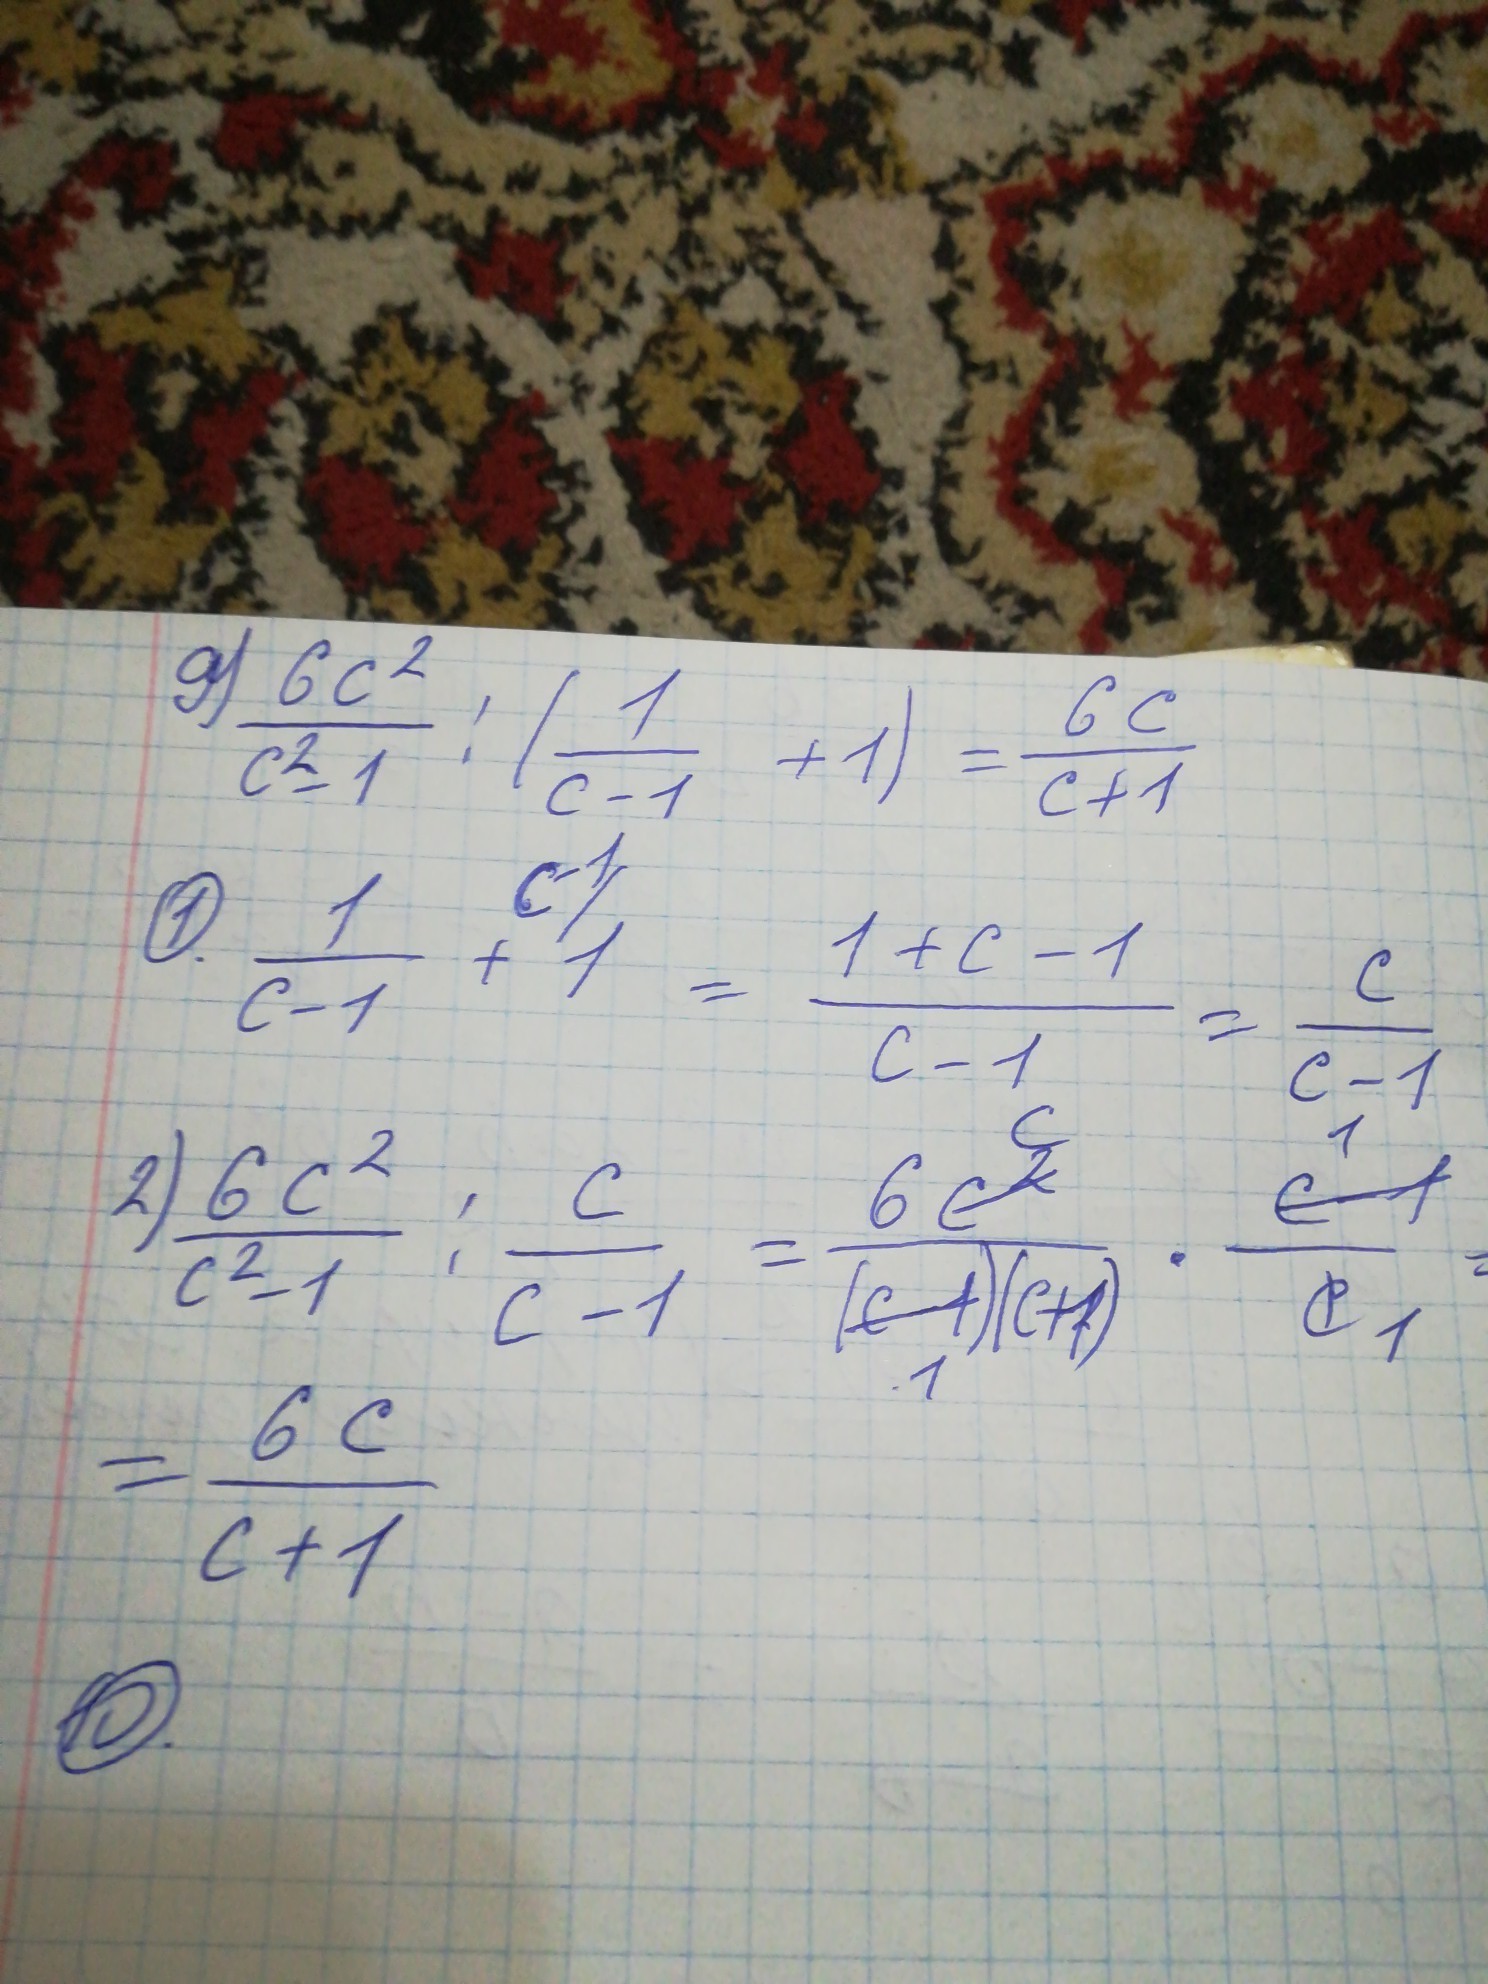 9) 6c²/(c²-1) : (1/(c-1) + 1) = 6c/(c+1)
1. 1/(c-1) + 1 ^(c-1/ = (1+c-1)/(c-1) = c/(c-1)
2) 6c²/(c²-1) : c/(c-1) = 6c² c/((c-1)(c+1)) 1 · c-1 1/c 1 =
= 6c/(c+1)
10.